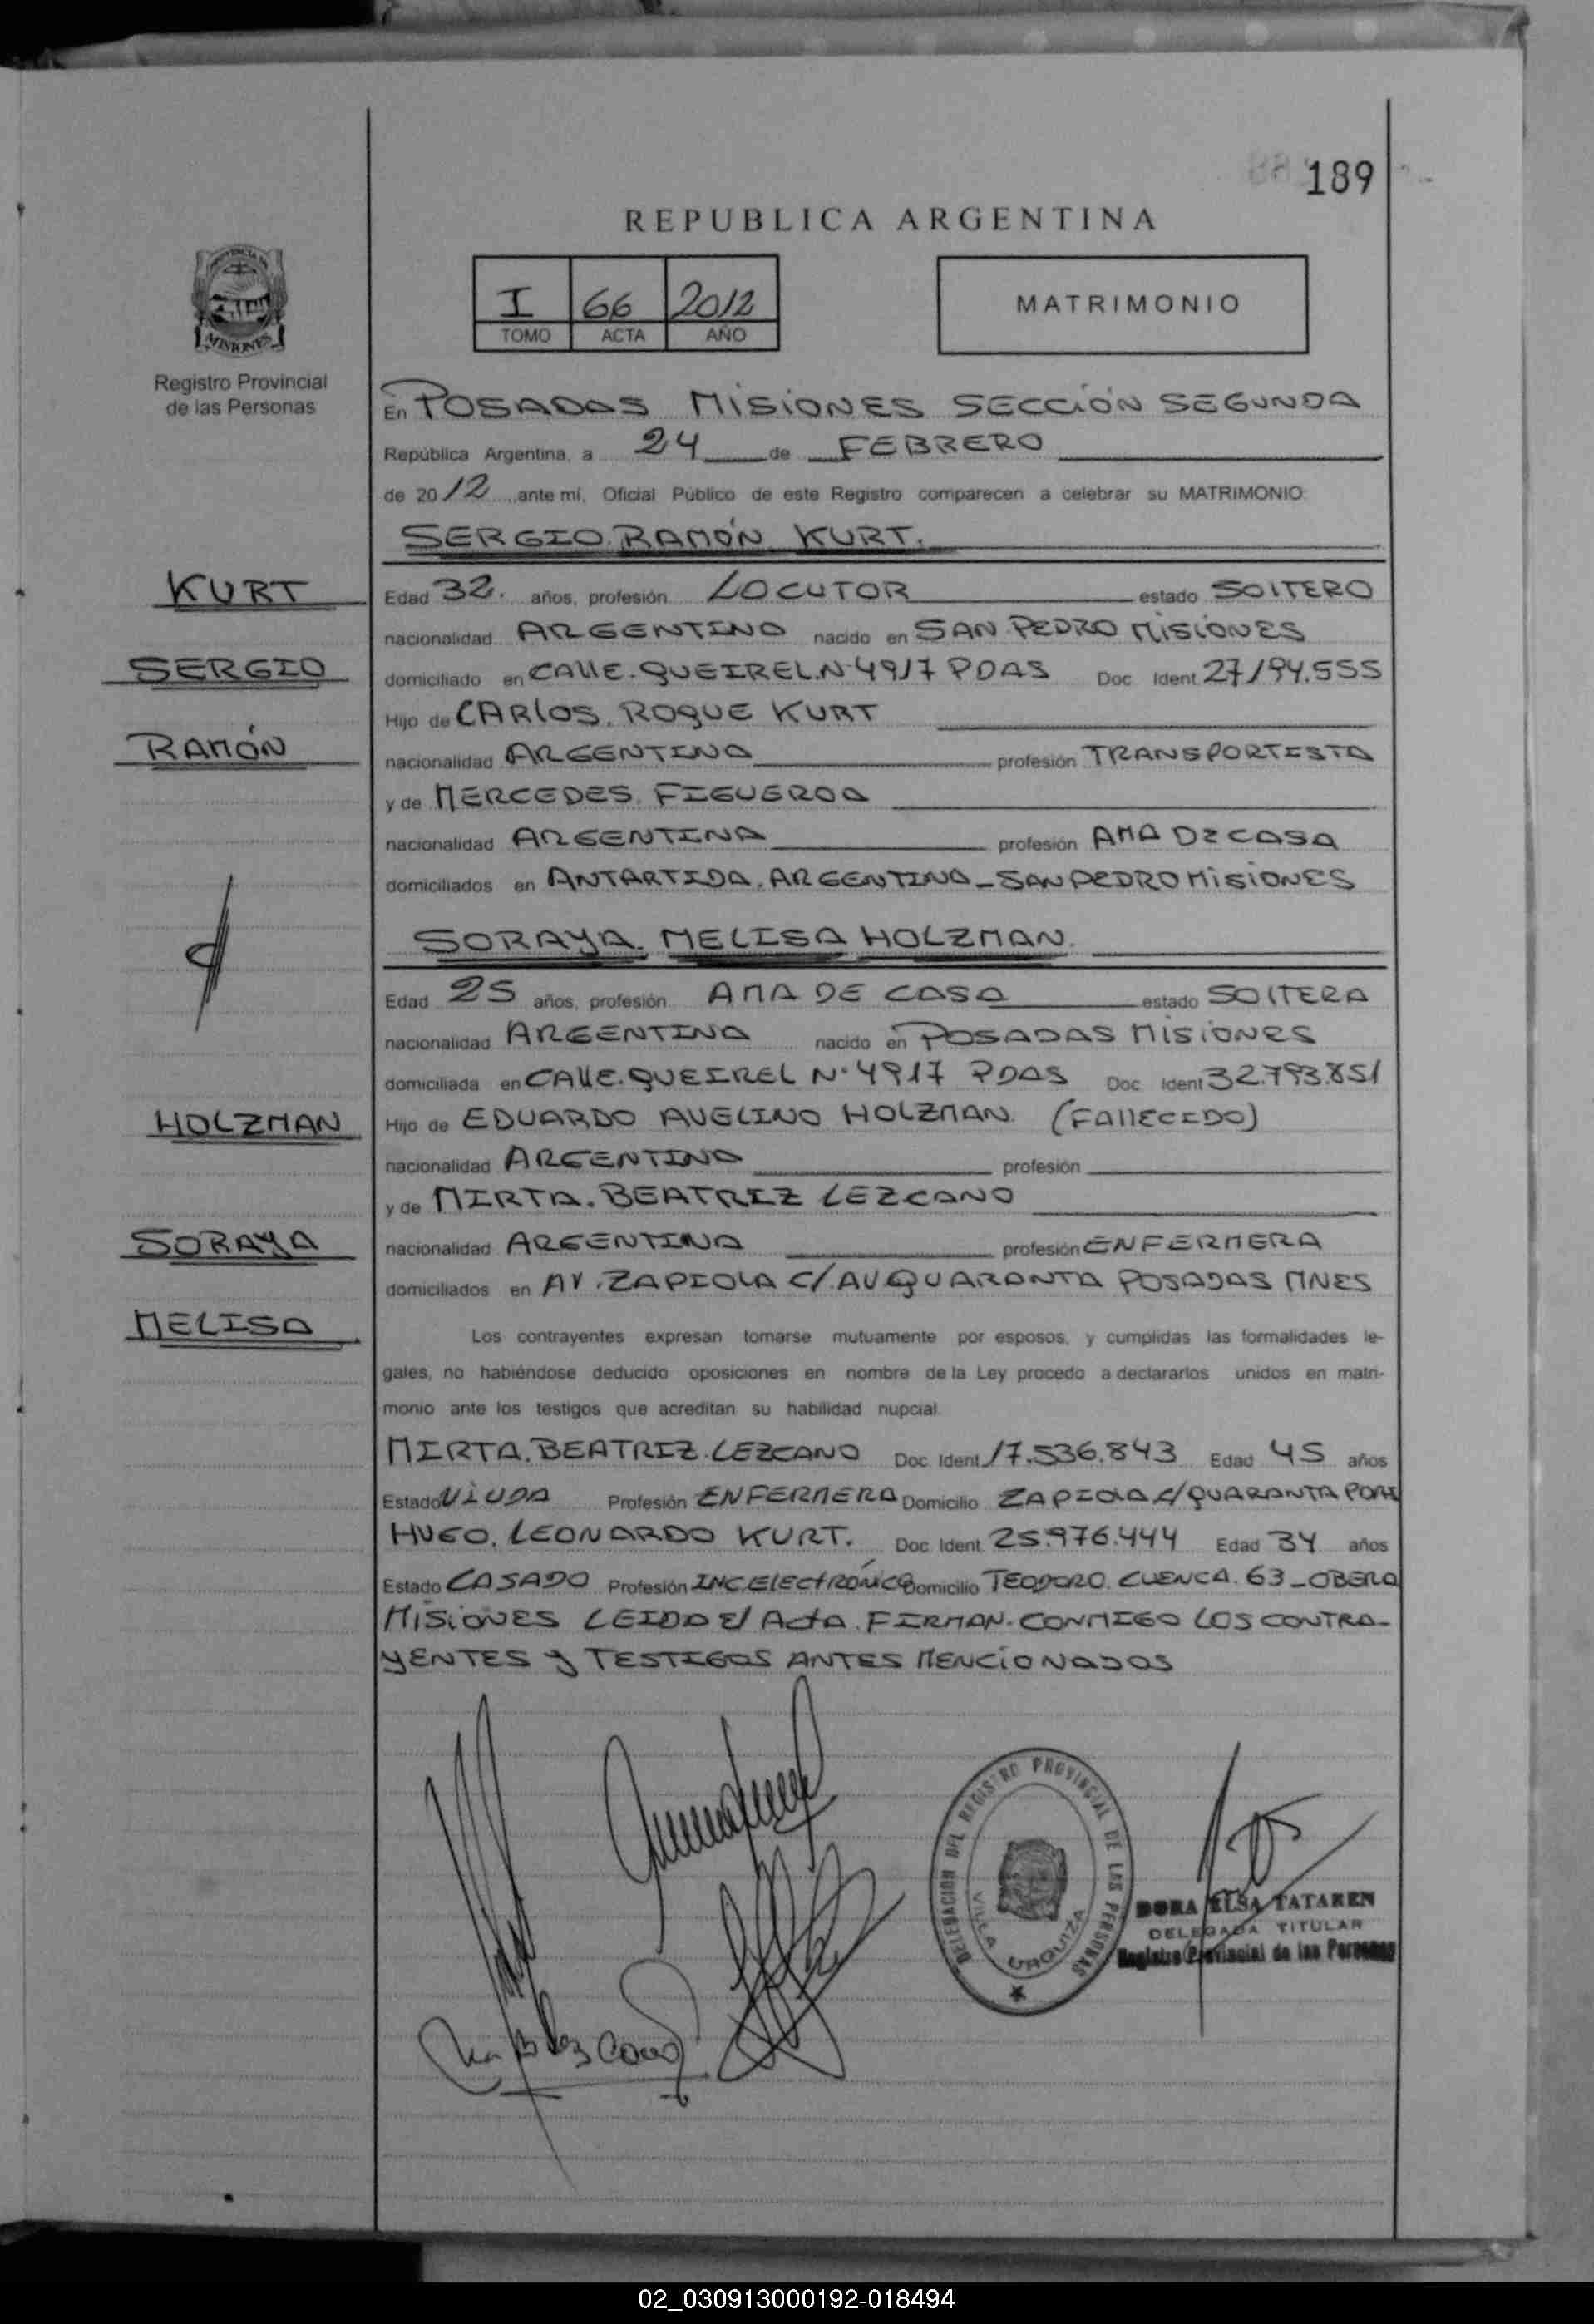 189
REPUBLICA ARGENTINA
I 66 2012
TOMO ACTA AÑO
MATRIMONIO
PROVINCIA DE
MISIONES
Registro Provincial
de las Personas
En POSADAS MISIONES SECCIÓN SEGUNDA
República Argentina, a 24 de FEBRERO
de 2012 ante mí, Oficial Público de este Registro comparecen a celebrar su MATRIMONIO:
SERGIO RAMÓN KURT.
KURT
SERGIO
RAMÓN
Edad 32. años, profesión LOCUTOR estado SOLTERO
nacionalidad ARGENTINO nacido en SAN PEDRO MISIONES
domiciliado en CALLE QUEIREL N 4917 PDAS Doc. Ident 27194.555
Hijo de CARLOS ROQUE KURT
nacionalidad ARGENTINO profesión TRANSPORTISTA
y de MERCEDES FIGUEROA
nacionalidad ARGENTINA profesión AMA DE CASA
domiciliados en ANTARTIDA ARGENTINA - SAN PEDRO MISIONES
SORAYA MELISA HOLZMAN.
Edad 25 años, profesión AMA DE CASA estado SOLTERA
nacionalidad ARGENTINA nacido en POSADAS MISIONES
domiciliada en CALLE QUEIREL N° 4917 PDAS Doc. Ident 32.793.851
HOLZMAN
SORAYA
MELISA
Hijo de EDUARDO AVELINO HOLZMAN (FALLECIDO)
nacionalidad ARGENTINO profesión
y de MIRTA BEATRIZ LEZCANO
nacionalidad ARGENTINA profesión ENFERMERA
domiciliados en AV. ZAPIOLA C/ AV QUARANTA POSADAS MNES
Los contrayentes expresan tomarse mutuamente por esposos, y cumplidas las formalidades le-
gales, no habiéndose deducido oposiciones en nombre de la Ley procedo a declararlos unidos en matri-
monio ante los testigos que acreditan su habilidad nupcial.
MIRTA BEATRIZ LEZCANO Doc. Ident. 17.536.843 Edad 45 años
Estado VIUDA Profesión ENFERMERA Domicilio ZAPIOLA C/ QUARANTA
HUGO LEONARDO KURT. Doc. Ident. 25.976.444 Edad 34 años
Estado CASADO Profesión ING. ELECTRÓNICO Domicilio TEODORO CUENCA 63 - OBERA
MISIONES LEIDA El Acta FIRMAN CONMIGO LOS CONTRA-
YENTES Y TESTIGOS ANTES MENCIONADOS
DELEGACION DEL REGISTRO PROVINCIAL DE LAS PERSONAS
VILLA URQUIZA
DORA ELSA TATAREN
DELEGADA TITULAR
Registro Provincial de las Personas
02_030913000192-018494